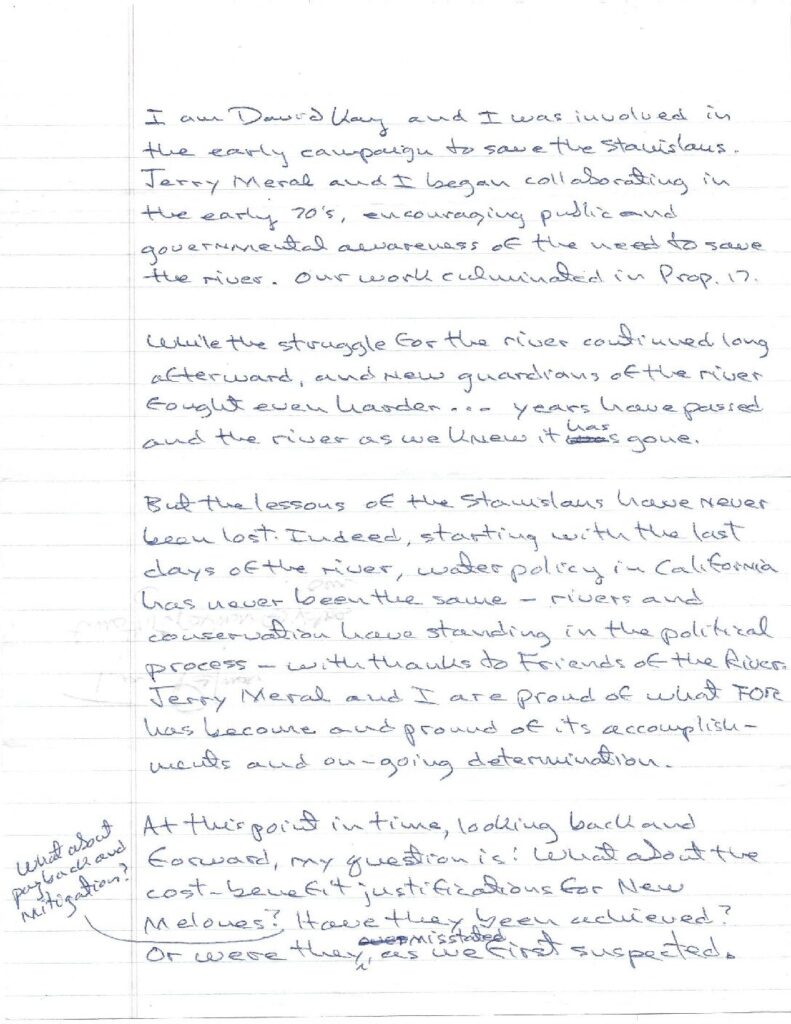 I am David Kay and I was involved in
the early campaign to save the Stanislaus.
Jerry Meral and I began collaborating in
the early 70's, encouraging public and
governmental awareness of the need to save
the river. Our work culminated in Prop. 17.
While the struggle for the river continued long
afterward, and new guardians of the river
fought even harder... years have passed
and the river as we knew it has gone.
But the lessons of the Stanislaus have never
been lost. Indeed, starting with the last
days of the river, water policy in California
has never been the same – rivers and
conservation have standing in the political
process – with thanks to Friends of the River.
Jerry Meral and I are proud of what FOR
has become and pround of its accomplish-
ments and on-going determination.
At this point in time, looking back and
forward, my question is: What about the
cost-benefit justifications for New
Melones? Have they been achieved?
Or were they misstated, as we first suspected.
What about
payback and
mitigation?